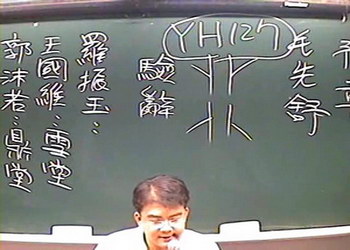 毛先舒
YH127
驗辭
羅振玉：
王國維：雪堂
郭沫若：鼎堂